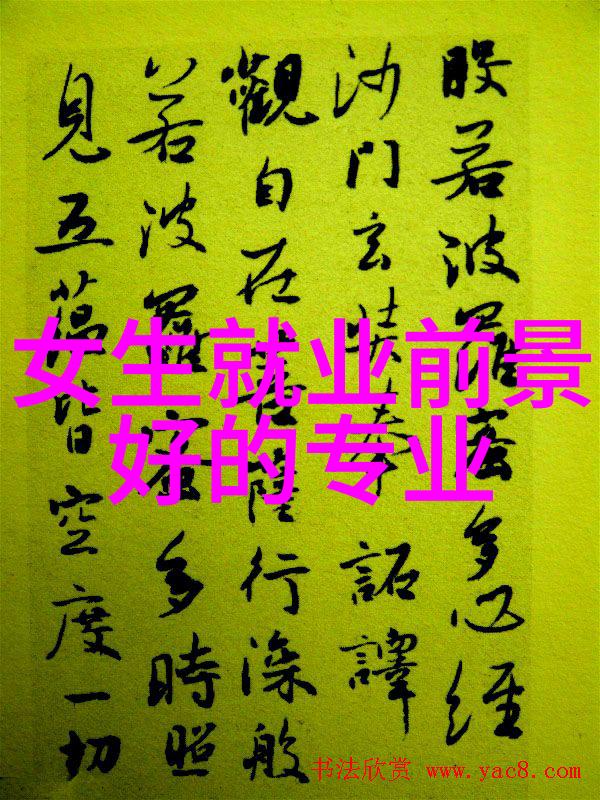 般若波羅蜜多心經
沙門玄奘奉 詔譯
觀自在菩薩行深般
若波羅蜜多時照
見五蘊皆空度一切
女生就业前景
好的专业
书法欣赏 www.yac8.com